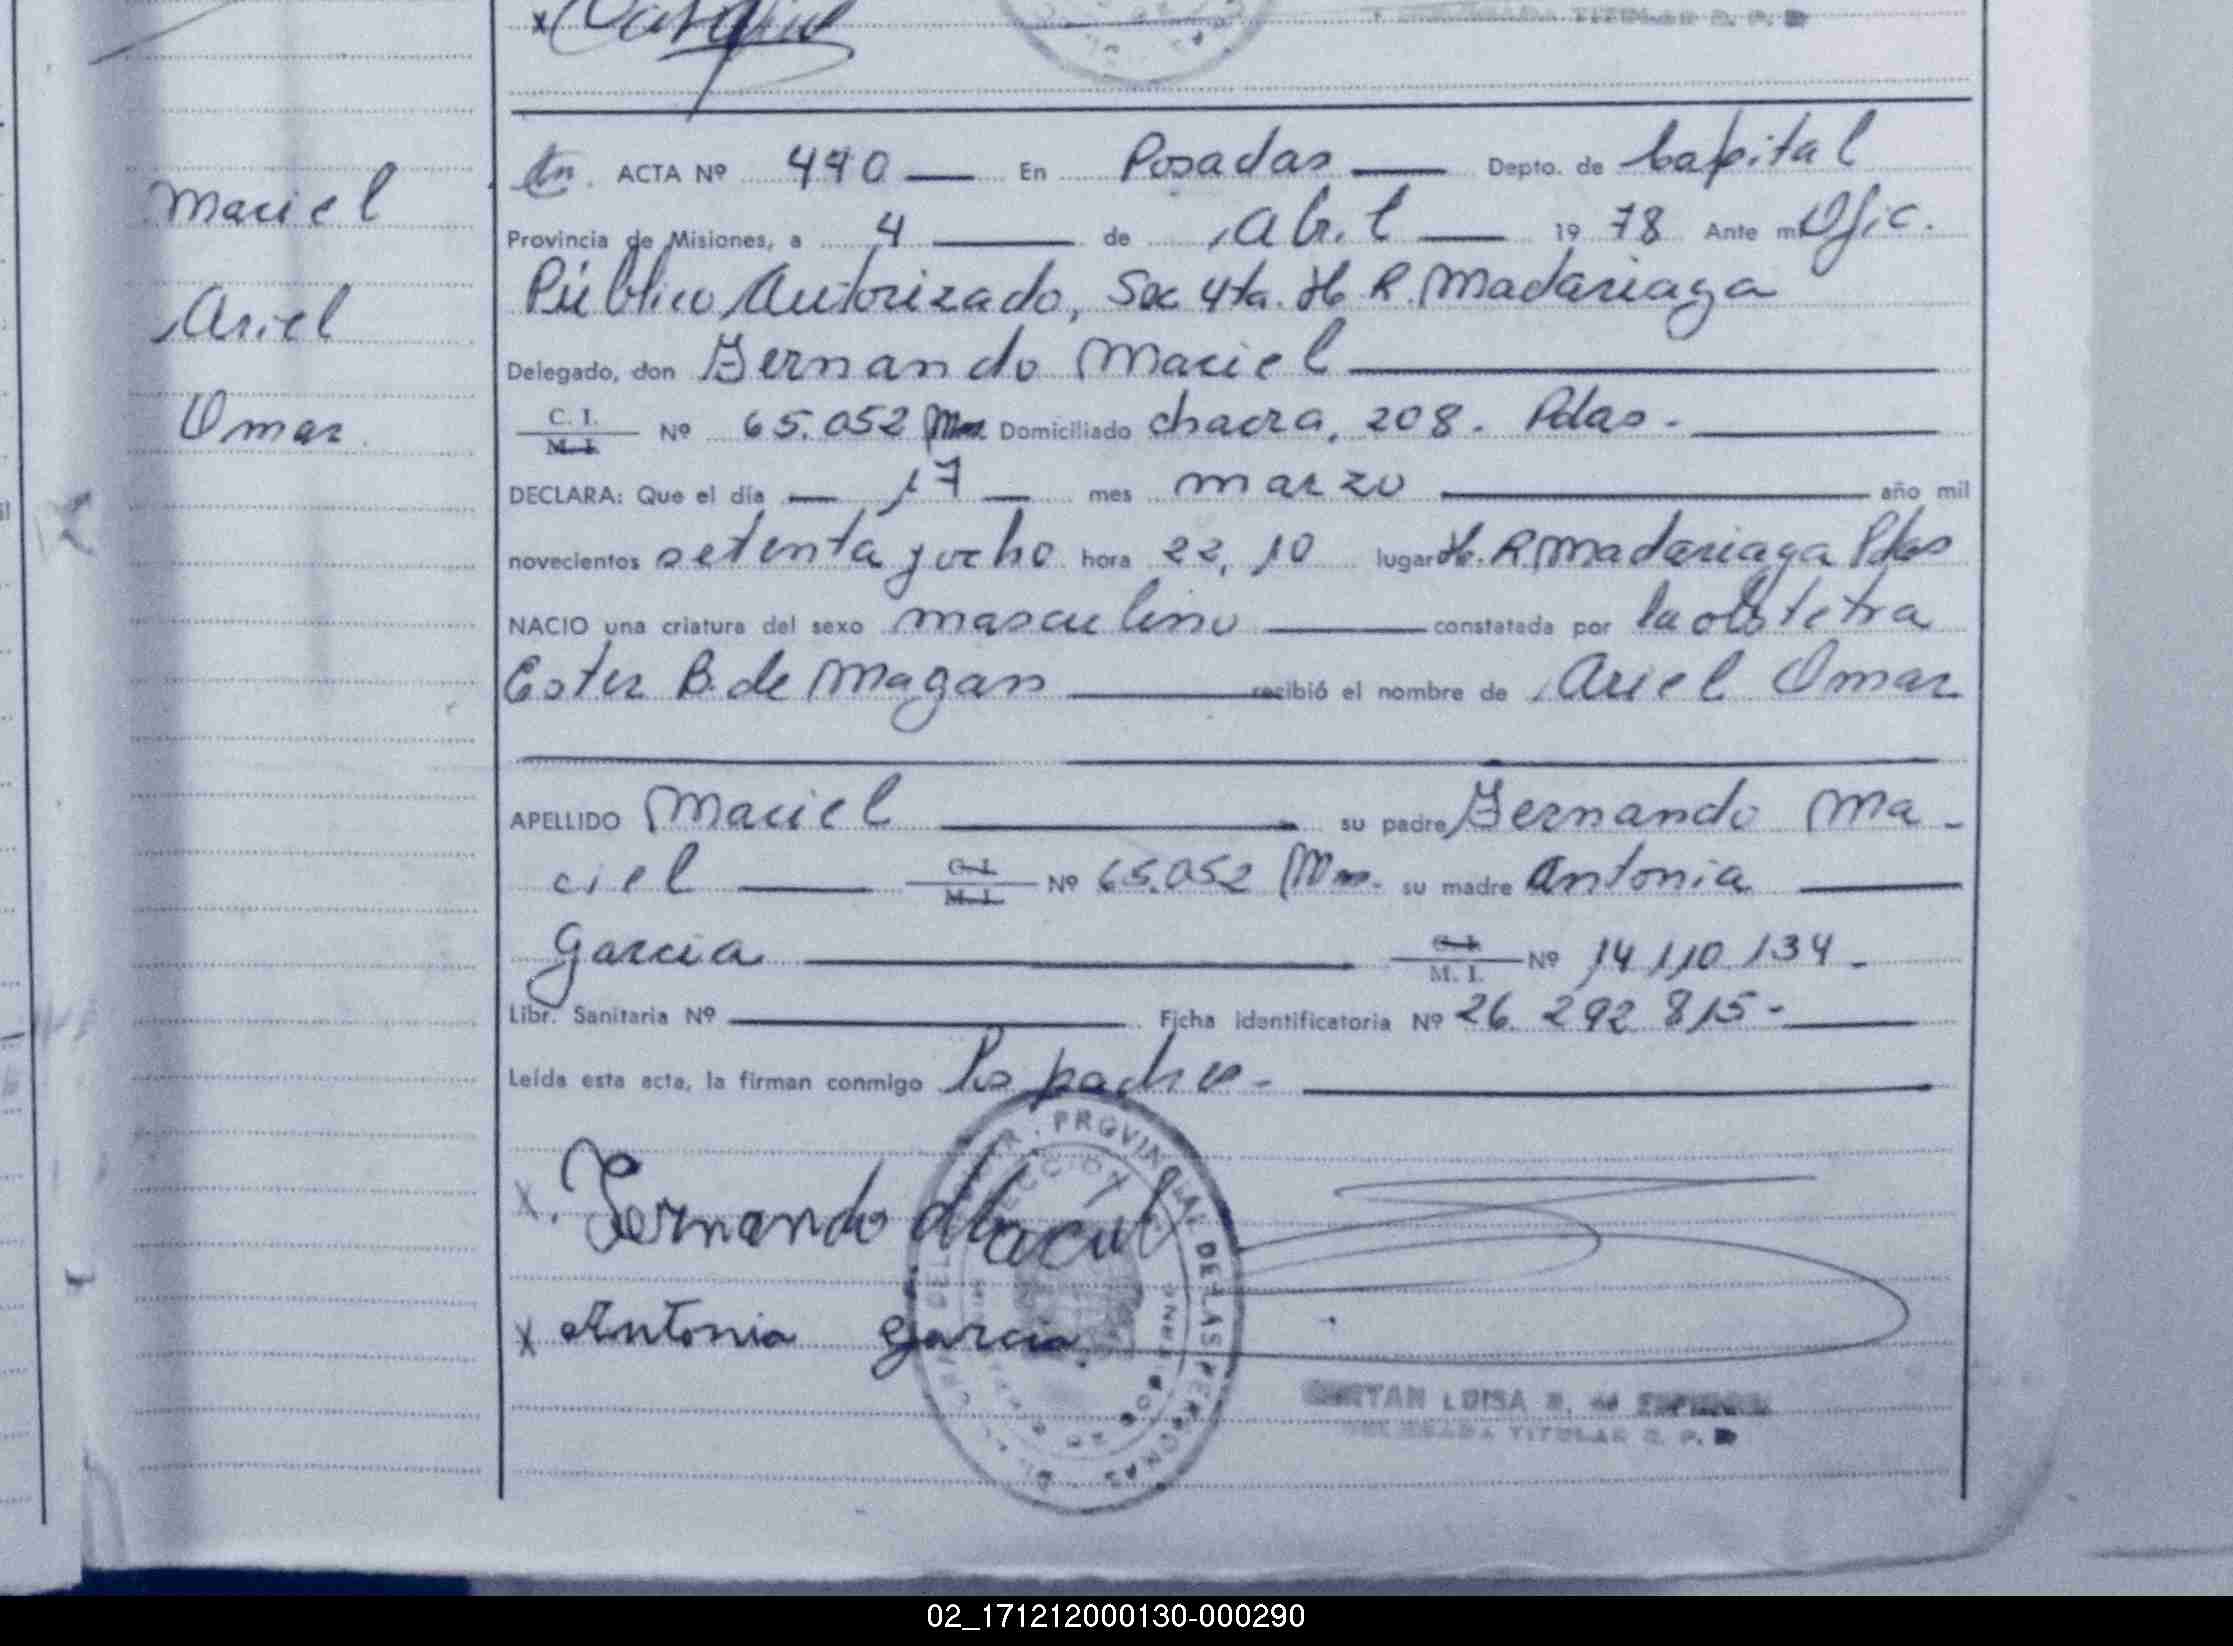 Maciel
Ariel
Omar
ACTA Nº 440 En Posadas Depto. de Capital
Provincia de Misiones, a 4 de Abril 19 78 Ante mí Ofic.
Público Autorizado, Sec 4ta. H. R. Madariaga
Delegado, don Fernando Maciel
C. I.
M. I. Nº 65.052 Mnes Domiciliado chacra, 208. Pdas.
DECLARA: Que el día 17 mes marzo año mil
novecientos setenta y ocho hora 22,10 lugar H. R Madariaga Pdas
NACIO una criatura del sexo masculino constatada por la obstetra
Ester B. de Magan recibió el nombre de Ariel Omar
APELLIDO Maciel su padre Fernando Ma-
ciel C. I. M. I. Nº 65.052 Mnes. su madre Antonia
Garcia C. I. M. I. Nº 14 110 134-
Libr. Sanitaria Nº Ficha identificatoria Nº 26.292 815-
Leída esta acta, la firman conmigo los padres-
X. Fernando Maciel
X Antonia Garcia.
PROVINCIAL DE LAS PERSONAS
LUISA
TITULAR R. P.
02_171212000130-000290